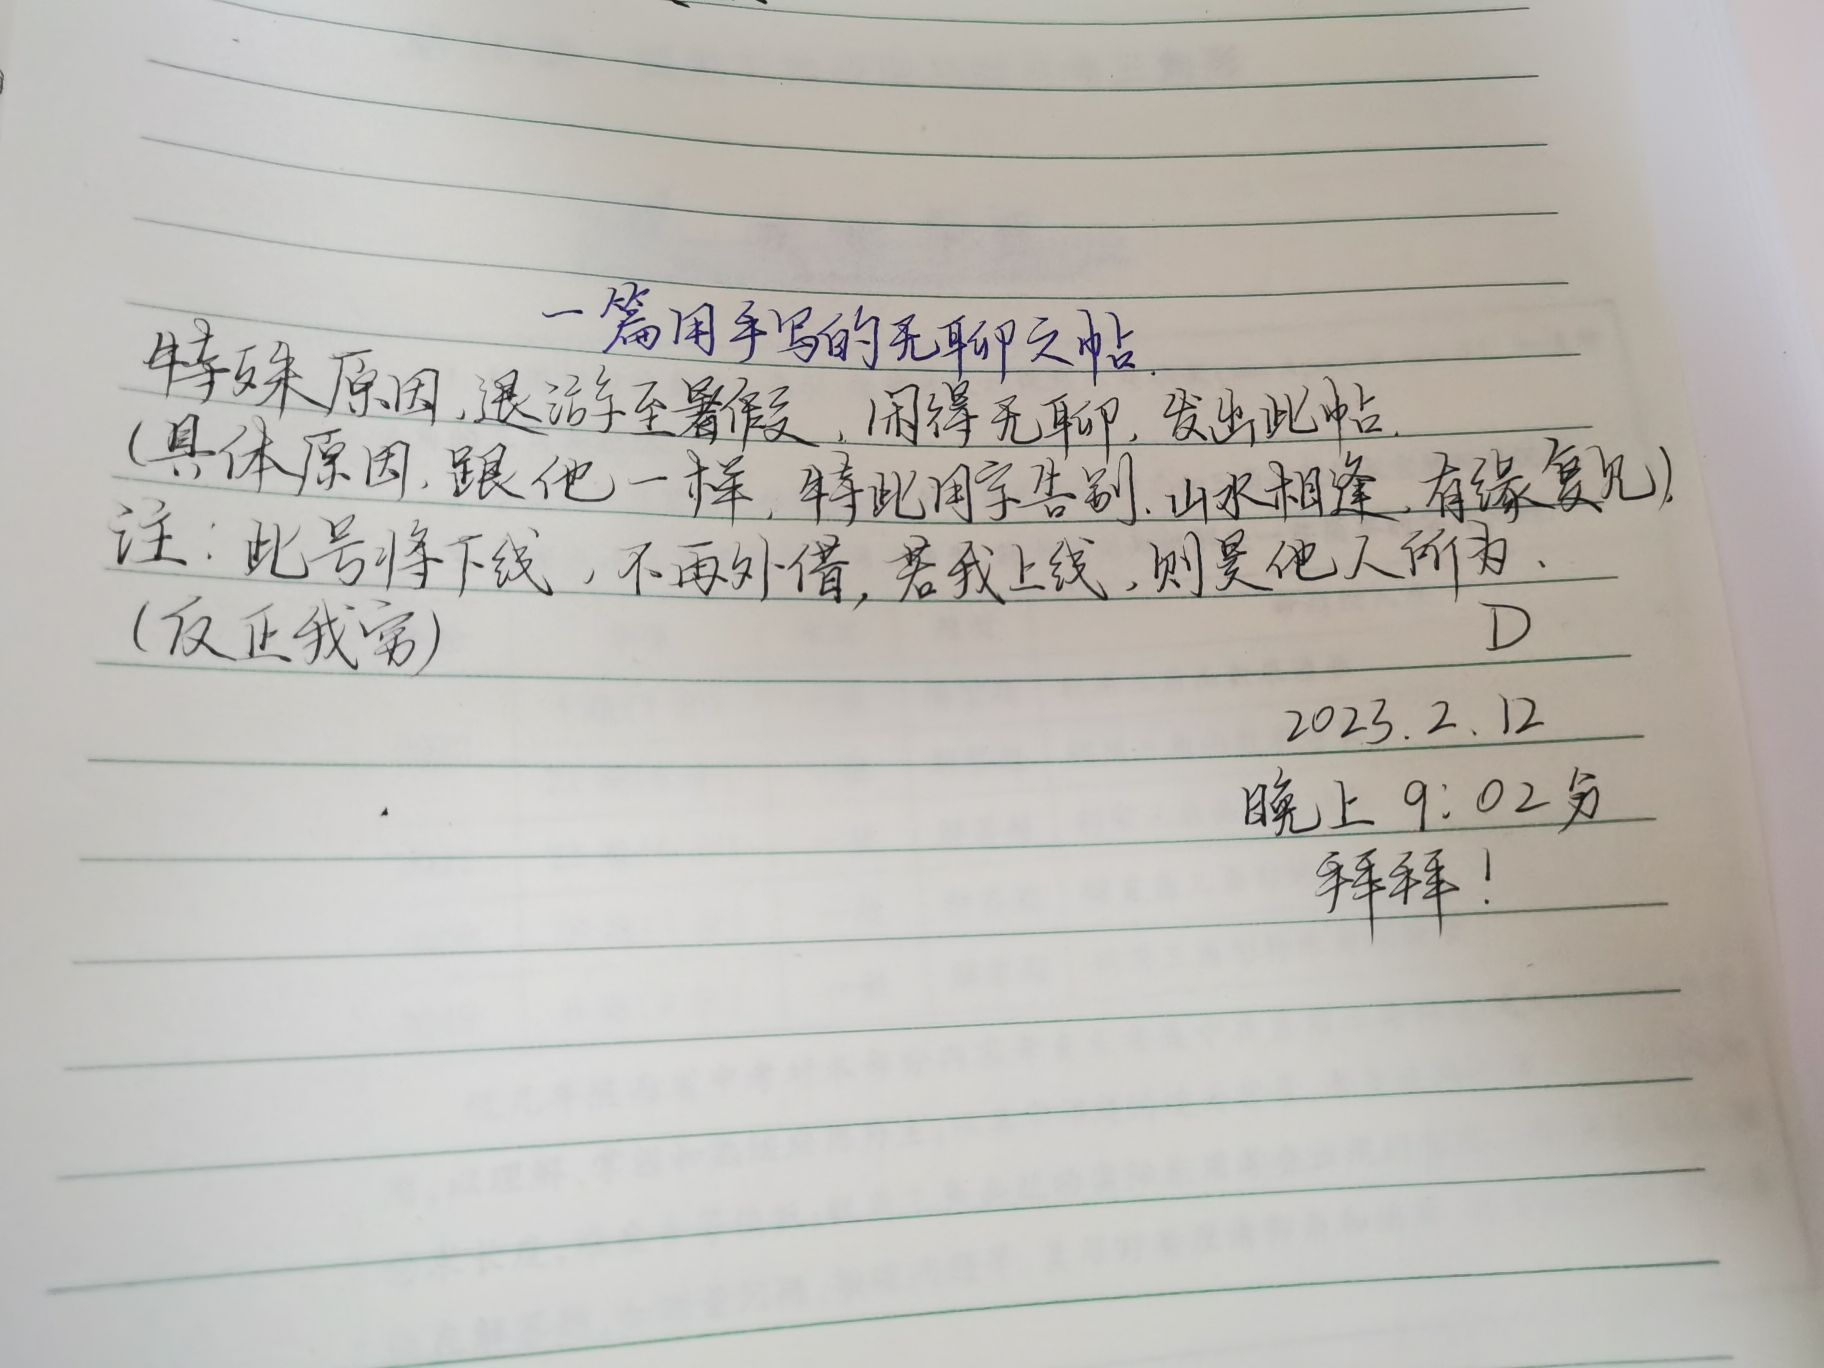 一篇用手写的无聊之帖.
特殊原因,退游至暑假,闲得无聊,发出此帖.
(具体原因,跟他一样,特此用字告别.山水相逢,有缘复见).
注:此号将下线,不再外借,若我上线,则是他人所为.
D
(反正我穷)
2023.2.12
晚上9:02分
拜拜!